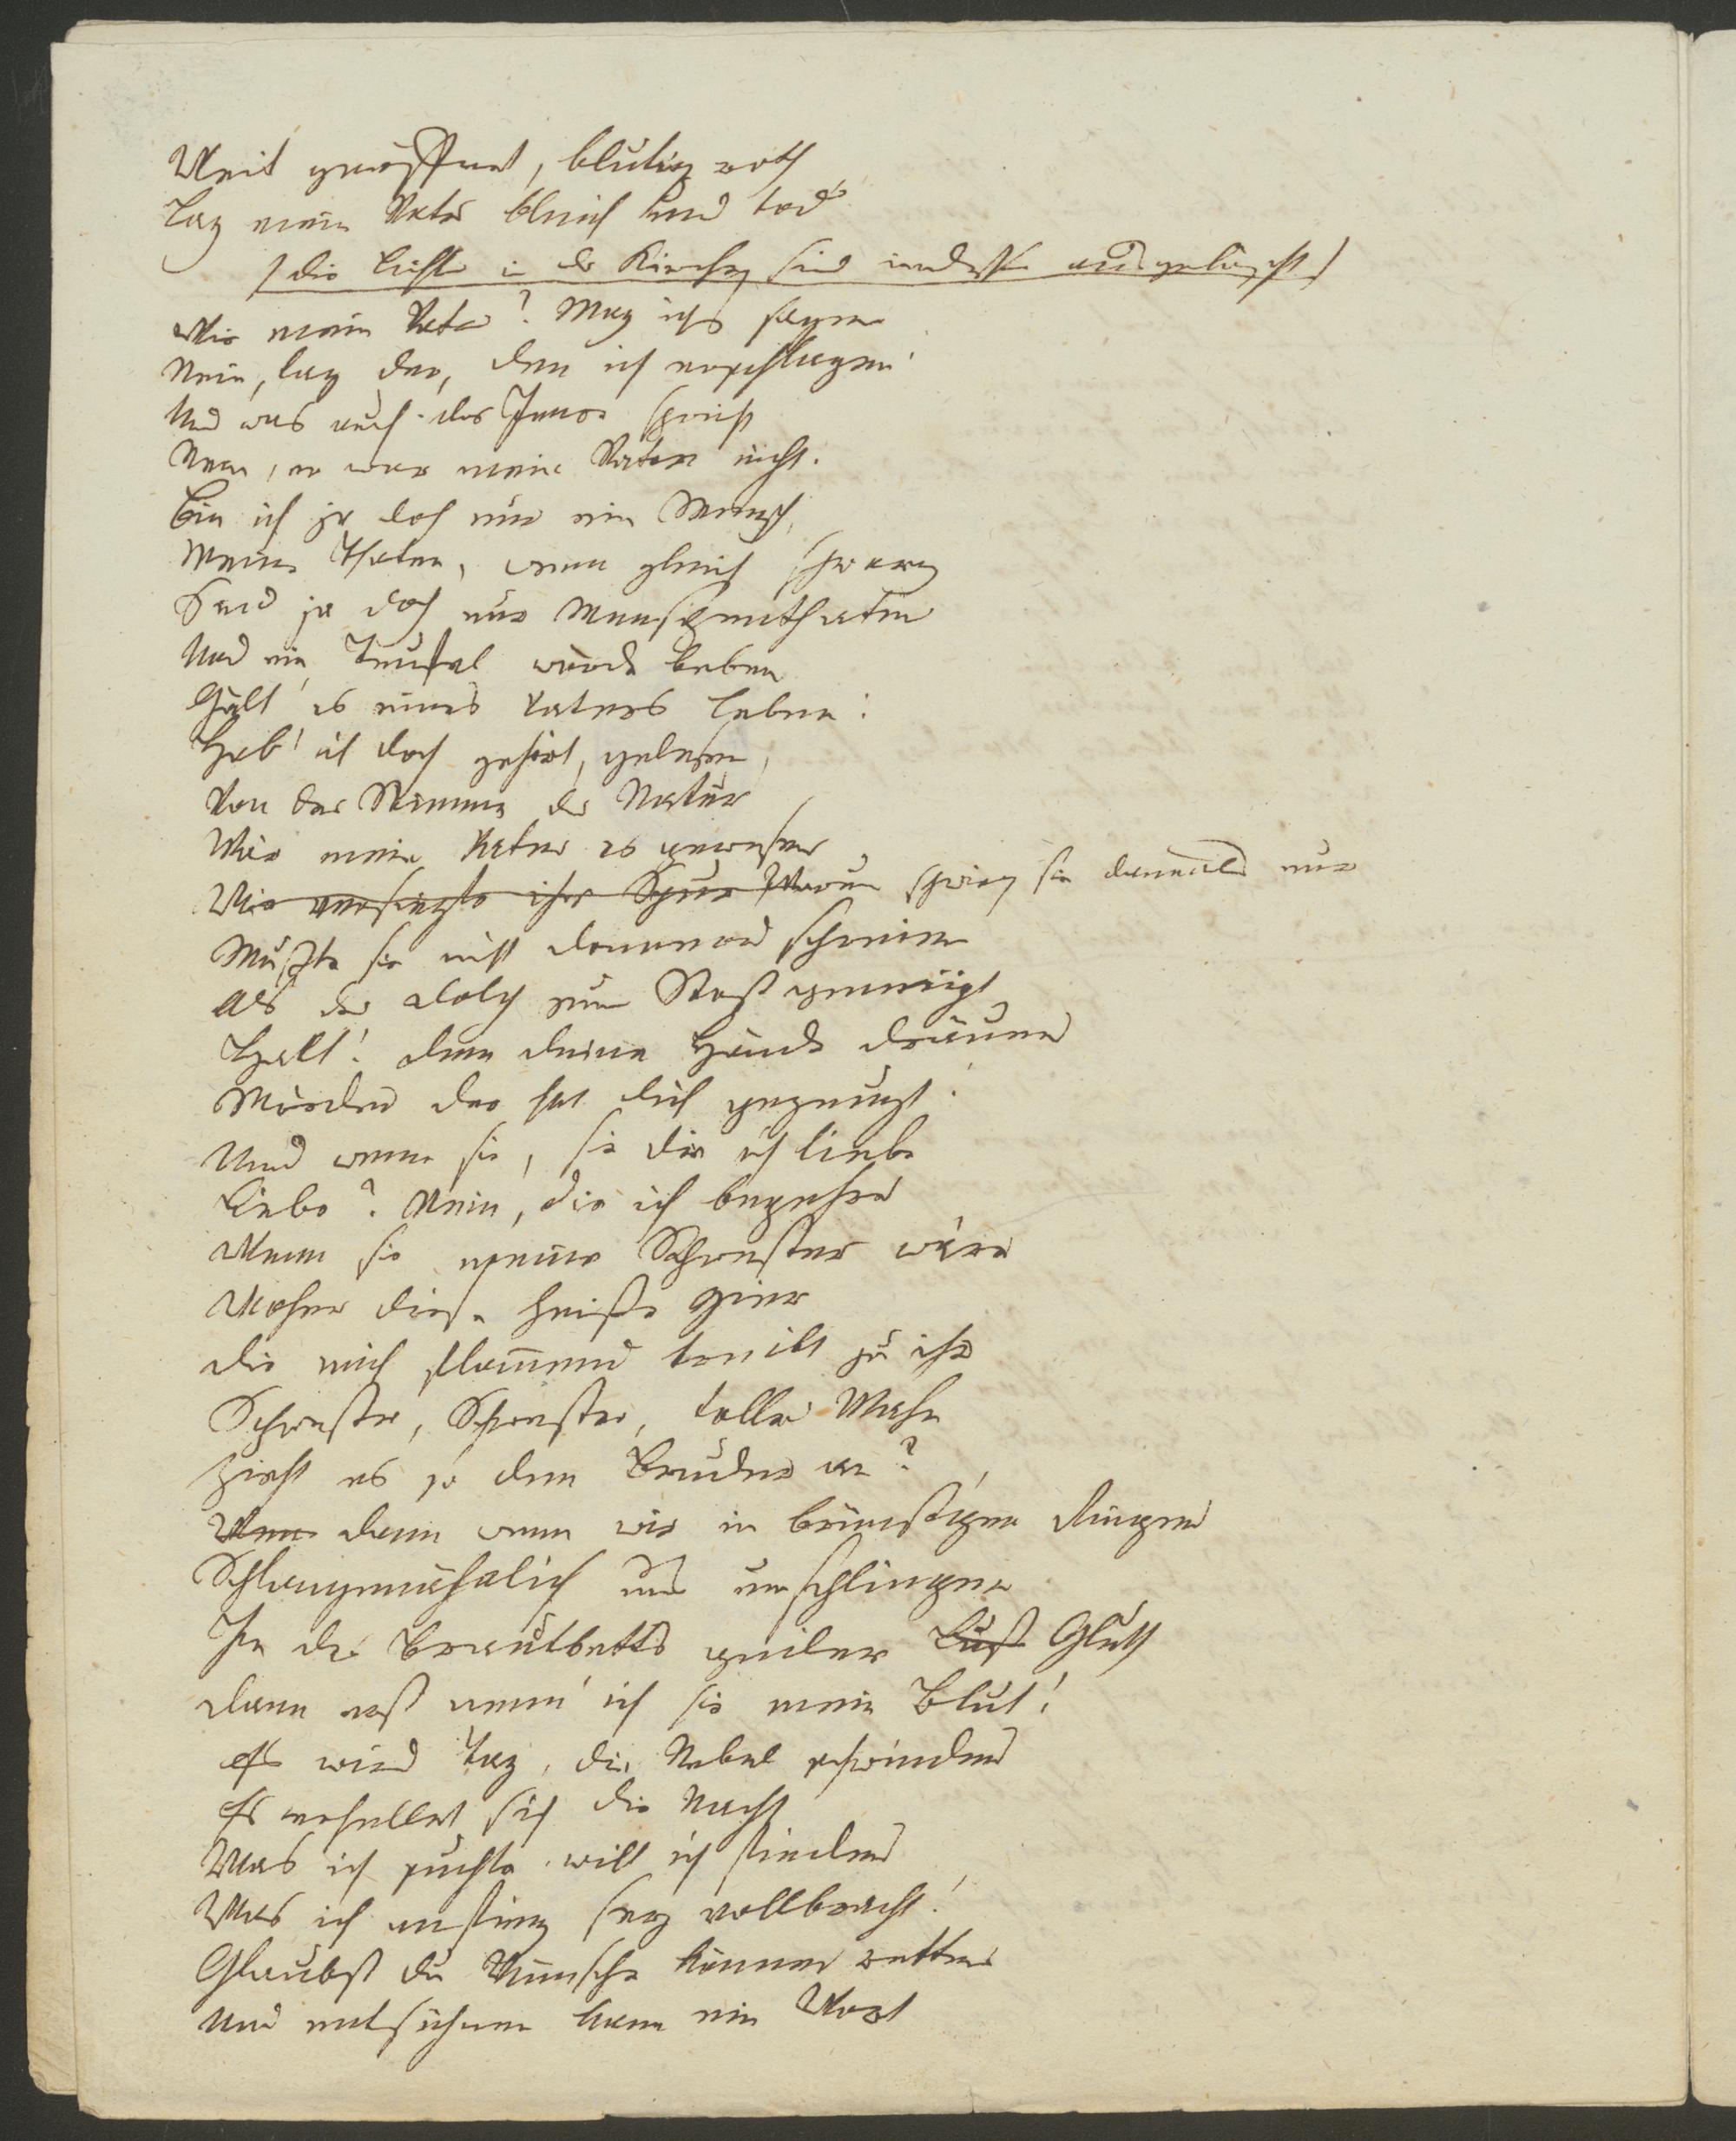 Weit geöffnet, blutig roth
Lag mein Vater bleich und tod
/die Lichter in der Kirche sind indessen ausgelöscht/
Wie mein Vater? Mag ichs sagen
Nein, lag der, den ich erschlagen!
Und was auch der Inn're spricht
Nein, er war mein Vater nicht.
Bin ich ja doch nur ein Mensch,
Meine Thaten, wenn gleich schwarz
Sind ja doch nur Menschenthaten
Und ein Teufel würde beben
Gält' es eines Vaters Leben!
Hab' ich doch gehört, gelesen,
Von der Stimme der Natur
Wär mein Vater es gewesen
Wie versiegte ihre Spur Warum schwieg sie damals nur
Mußte sie nicht donnernd schreien
Als der Dolch zum Stoß geneigt
Halt! dem deine Hände dräuen
Mörder der hat dich gezeugt!
Und wenn sie, sie die ich liebe
Liebe? Nein, die ich begehre
Wenn sie meine Schwester wäre
Woher diese heiße Gier
Die mich flammend treibt zu ihr
Schwester, Schwester, toller Wahn
Zieht es so den Bruder an?
Wenn dann wenn wir in brünstigen Ringen
Schlangenähnlich uns umschlingen
In des Brautbetts geiler Lust Gluth
Dann erst nenn' ich sie mein Blut!
Es wird Tag, die Nebel schwinden
Es erhellet sich die Nacht
Was ich suchte will ich finden
Was ich anfing sey vollbracht!
Glaubst du Wünsche können retten
Und entsühnen kann ein Wort